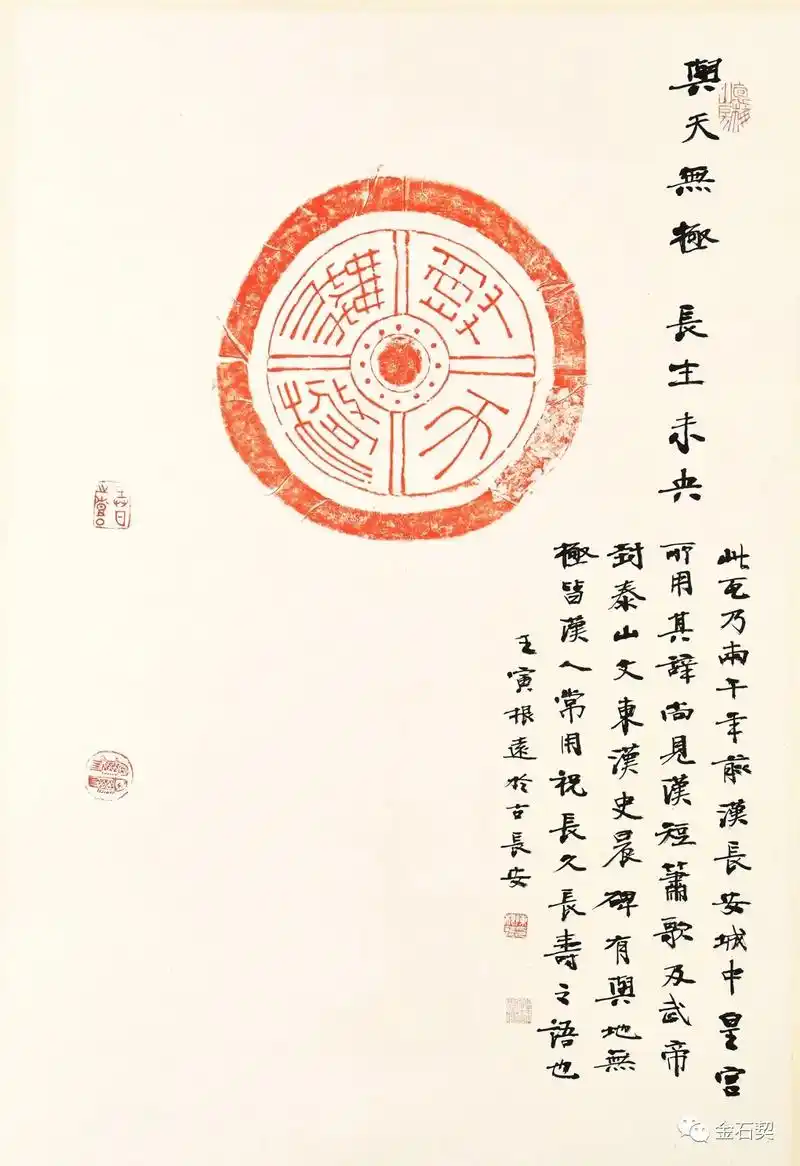 與天無極 長生未央
此瓦乃兩千年前漢長安城中皇宮
所用其辭尚見漢短簫歌及武帝
封泰山文東漢史晨碑有與地無
極皆漢人常用祝長久長壽之語也
壬寅根遠於古長安
與天無極
金石契